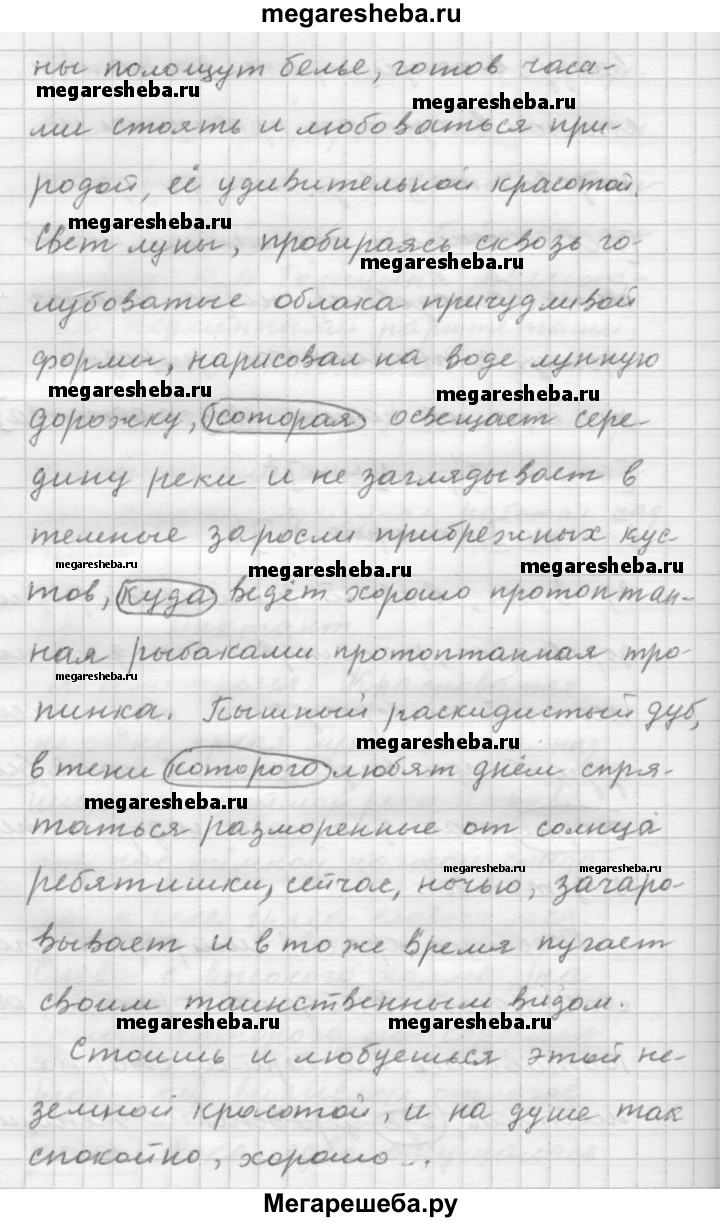 megaresheba.ru
ны полощут белье, готов часа-
megaresheba.ru megaresheba.ru
ми стоять и любоваться при-
родой, её удивительной красотой.
megaresheba.ru
Свет луны, пробираясь сквозь го-
megaresheba.ru
лубоватые облака причудливой
формы, нарисовал на воде лунную
megaresheba.ru megaresheba.ru
дорожку, которая освещает сере-
дину реки и не заглядывает в
темные заросли прибрежных кус-
megaresheba.ru megaresheba.ru megaresheba.ru
тов, куда ведёт хорошо протоптан-
ная рыбаками протоптанная тро-
megaresheba.ru
пинка. Пышный раскидистый дуб,
megaresheba.ru
в тени которого любят днём спря-
megaresheba.ru
таться разморенные от солнца
megaresheba.ru megaresheba.ru
ребятишки, сейчас, ночью, зачаро-
вывает и в то же время пугает
своим таинственным видом.
megaresheba.ru megaresheba.ru
Стоишь и любуешься этой не-
земной красотой, и на душе так
спокойно, хорошо...
Мегарешеба.ру